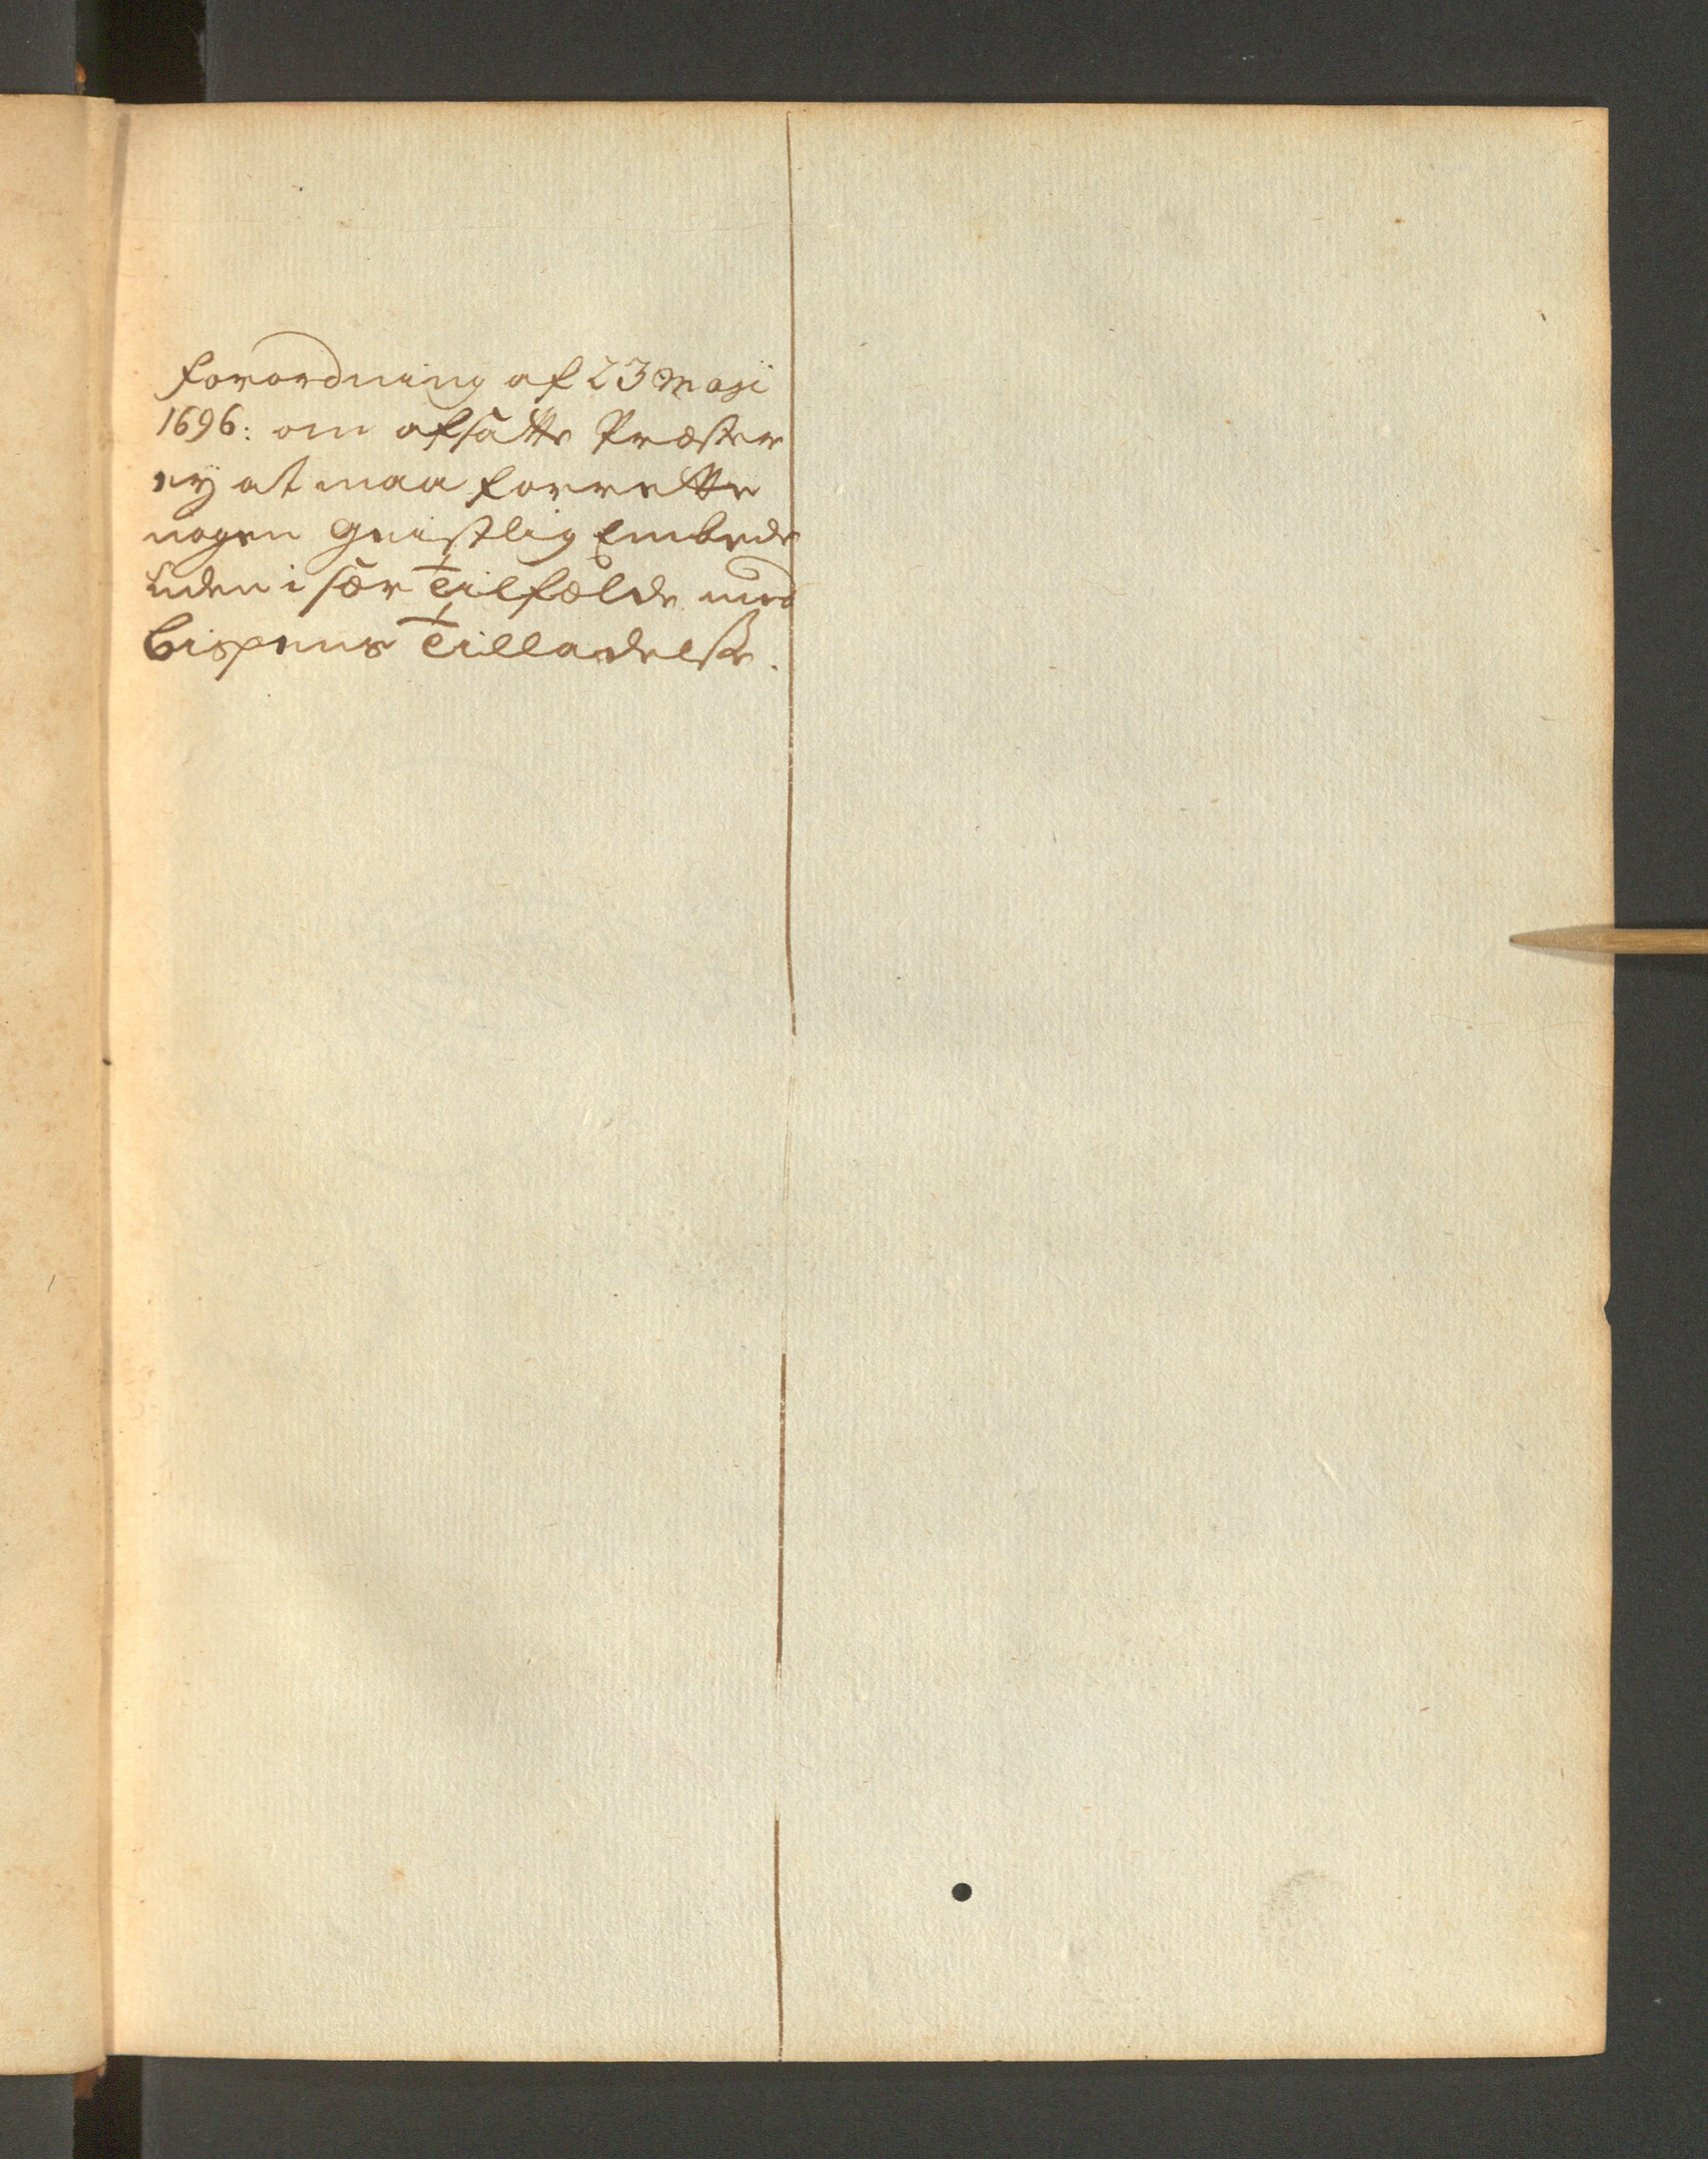 Forordning af 23 Maji
1696: om afsatte Præster
ey at maa forrette
nogen Geistlig Embede
uden i sær Tilfælde med
Bispens Tilladelse.